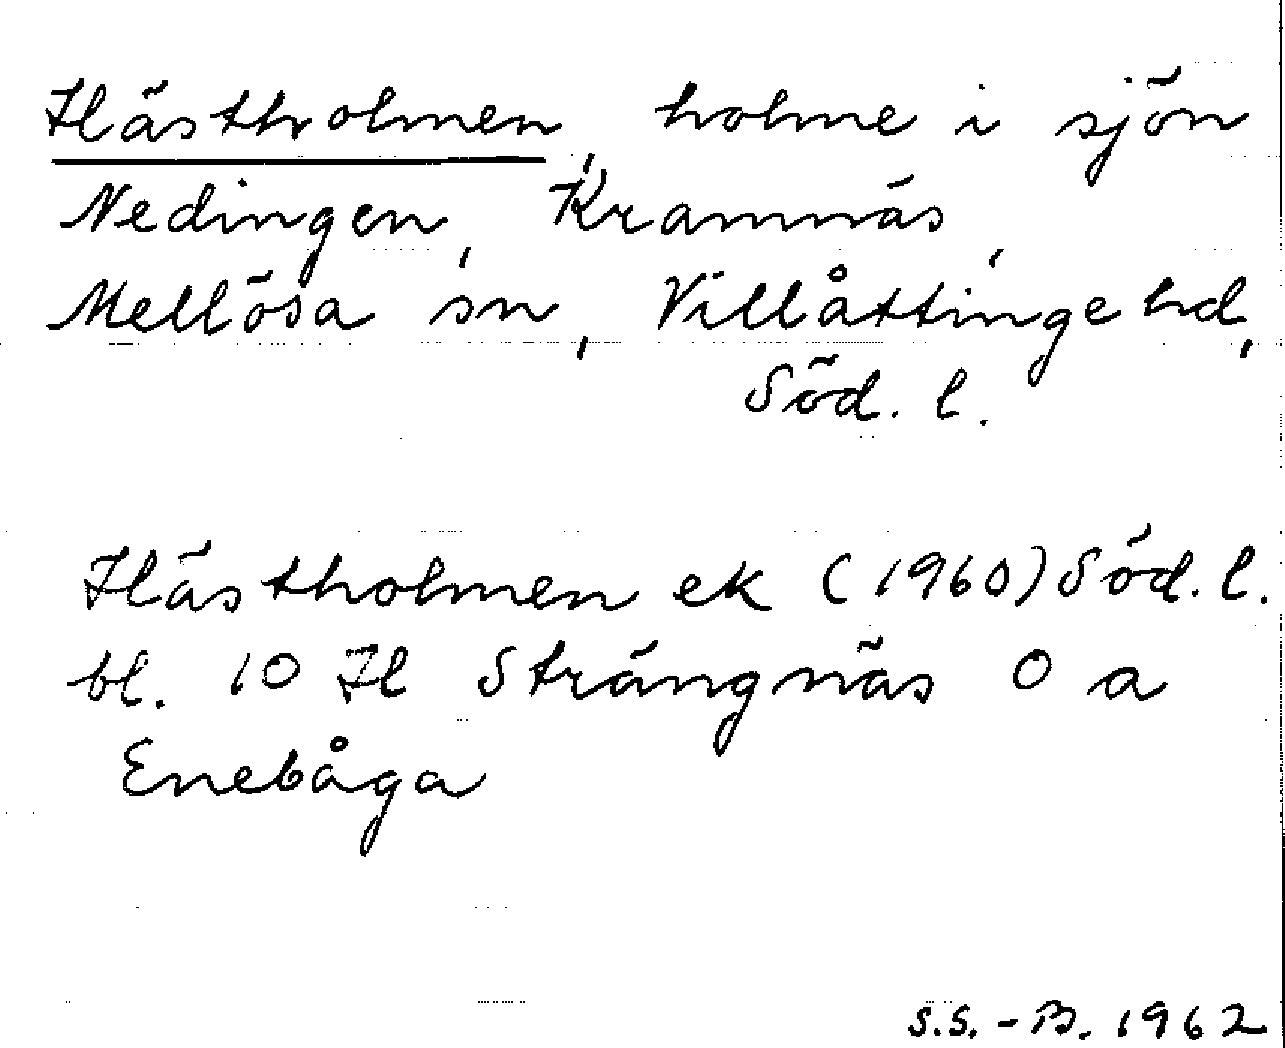 Hästholmen, holme i sjön
Nedingen, Kramnäs,
Mellösa sn, Villåttinge hd,
Söd. l.
Hästholmen ek (1960) Söd. l.
bl. 10 H Strängnäs O a
Enebåga
S.S.-B. 1962